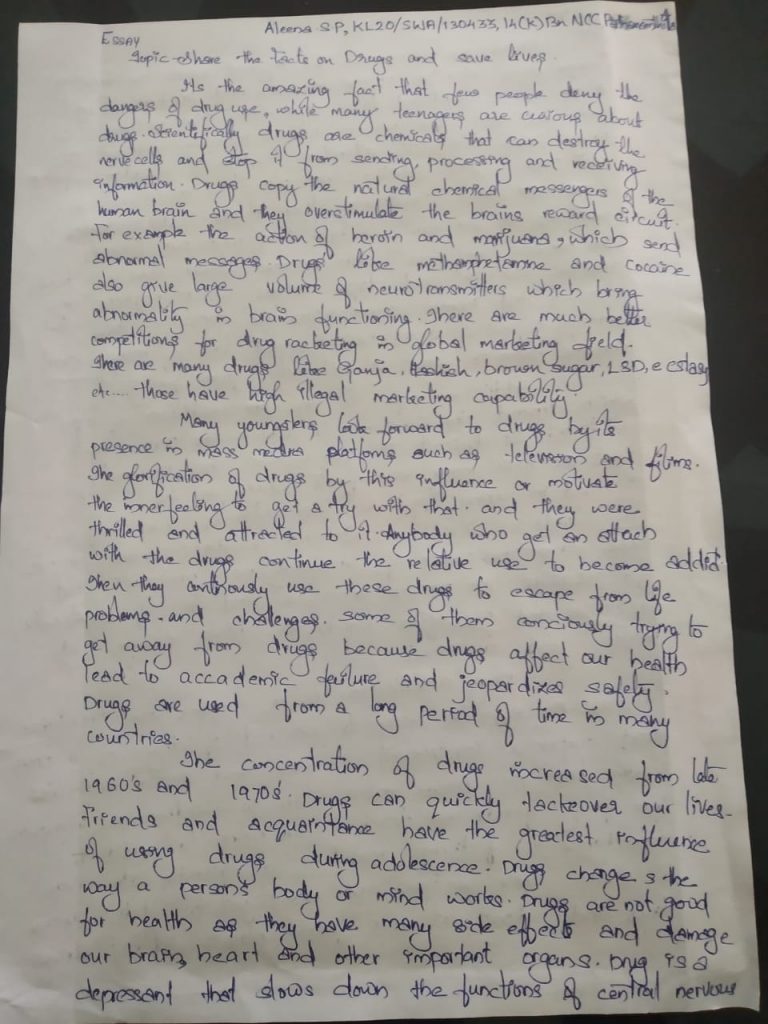 Aleena S P, KL20/SWA/130433, 14(K) Bn NCC
ESSAY
Topic - Share the facts on Drugs and save lives.
It's the amazing fact that few people deny the
dangers of drug use, while many teenagers are curious about
drugs. Scientifically drugs are chemicals that can destroy the
nerve cells and stop it from sending, processing and receiving
information. Drugs copy the natural chemical messengers of the
human brain and they overstimulate the brains reward circuit.
For example the action of heroin and marijuana, which send
abnormal messages. Drugs like methamphetamine and cocaine
also give large volume of neurotransmitters which bring
abnormality in brain functioning. There are much better
competitions for drug racketing in global marketing field.
There are many drugs like Ganja, Hashish, brown sugar, LSD, e cstasy
etc.... those have high illegal marketing capability.
Many youngsters look forward to drugs by its
presence in mass media platfoms such as television and films.
The glorification of drugs by this influence or motivate
the innerfeeling to get a try with that. and they were
thrilled and attracted to it. Anybody who get an attach
with the drugs continue the relative use to become addict.
Then they continously use these drugs to escape from life
problems. and challenges. some of them conciously trying to
get away from drugs because drugs affect our health
lead to accademic failure and jeopardizes safety.
Drugs are used from a long period of time in many
countries.
The concentration of drugs increased from late
1960's and 1970s'. Drugs can quickly tackeover our lives.
Friends and acquaintance have the greatest influence
of using drugs during adolescence. Drugs change s the
way a person's body or mind works. Drugs are not good
for health as they have many side effects and damage
our brain, heart and other important organs. Drug is a
depressant that slows down the functions of central nervous